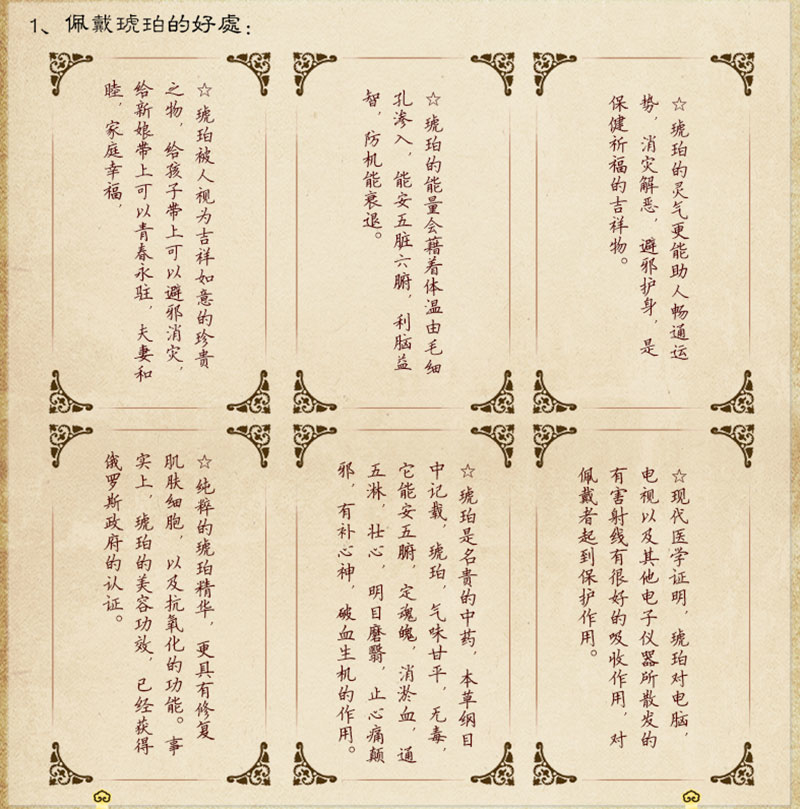 1、佩戴琥珀的好處：
☆琥珀的灵气更能助人畅通运
势，消灾解恶，避邪护身，是
保健祈福的吉祥物。
☆琥珀的能量会藉着体温由毛细
孔渗入，能安五脏六腑，利脑益
智，防机能衰退。
☆琥珀被人视为吉祥如意的珍贵
之物，给孩子带上可以避邪消灾，
给新娘带上可以青春永驻，夫妻和
睦，家庭幸福，
☆现代医学证明，琥珀对电脑，
电视以及其他电子仪器所散发的
有害射线有很好的吸收作用，对
佩戴者起到保护作用。
☆琥珀是名贵的中药，本草纲目
中记载，琥珀，气味甘平，无毒，
它能安五腑，定魂魄，消淤血，通
五淋，壮心，明目磨翳，止心痛颠
邪，有补心神，破血生机的作用。
☆纯粹的琥珀精华，更具有修复
肌肤细胞，以及抗氧化的功能。事
实上，琥珀的美容功效，已经获得
俄罗斯政府的认证。